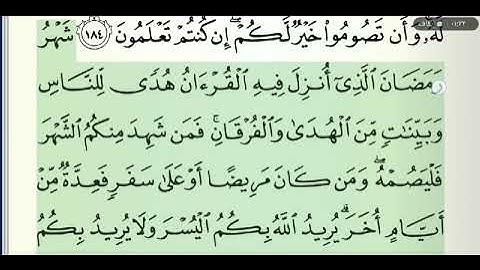 لَّهُۥ وَأَن تَصُومُوا۟ خَيْرٌ لَّكُمْ ۖ إِن كُنتُمْ تَعْلَمُونَ ١٨٤ شَهْرُ
رَمَضَانَ ٱلَّذِىٓ أُنزِلَ فِيهِ ٱلْقُرْءَانُ هُدًى لِّلنَّاسِ
وَبَيِّنَـٰتٍ مِّنَ ٱلْهُدَىٰ وَٱلْفُرْقَانِ ۚ فَمَن شَهِدَ مِنكُمُ ٱلشَّهْرَ
فَلْيَصُمْهُ ۖ وَمَن كَانَ مَرِيضًا أَوْ عَلَىٰ سَفَرٍ فَعِدَّةٌ مِّنْ
أَيَّامٍ أُخَرَ ۗ يُرِيدُ ٱللَّهُ بِكُمُ ٱلْيُسْرَ وَلَا يُرِيدُ بِكُمُ